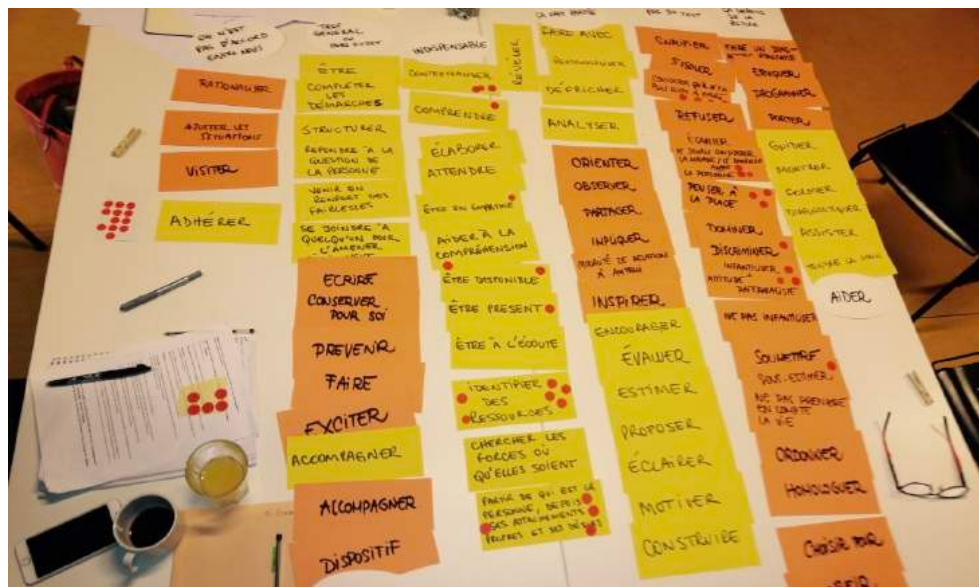 ON N'EST
PAS D'ACCORD
ENTRE NOUS
RATIONALISER
AJUSTER LES
SITUATIONS
VISITER
ADHÉRER
GÉNÉRAL
ÊTRE
COMPLÉTER
LES
DÉMARCHES
STRUCTURER
RÉPONDRE À LA
QUESTION DE
LA PERSONNE
VENIR EN
RENFORT DES
FAIBLESSES
SE JOINDRE À
QUELQU'UN POUR
L'AMENER
ECRIRE
CONSERVER
POUR SOI
PREVENIR
FAIRE
EXCITER
ACCOMPAGNER
ACCOMPAGNER
DISPOSITIF
INDISPENSABLE
COMPRENDRE
ÉLABORER
ATTENDRE
ÊTRE EN EMPATHIE
AIDER À LA
COMPRÉHENSION
ÊTRE DISPONIBLE
ÊTRE PRÉSENT
ÊTRE À L'ÉCOUTE
IDENTIFIER
DES
RESSOURCES
CHERCHER LES
FORCES OÙ
QU'ELLES SOIENT
PARTIR DE QUI EST LA
PERSONNE, DEPUIS
SES ATTACHEMENTS
PROPRES ET SES DÉSIRS
RÉVÉLER
FAIRE AVEC
DÉFRICHER
ANALYSER
ORIENTER
OBSERVER
PARTAGER
IMPLIQUER
MODALITÉ DE RELATION
À AUTRUI
INSPIRER
ENCOURAGER
ÉVALUER
ESTIMER
PROPOSER
ÉCLAIRER
MOTIVER
CONSTRUIRE
PAS DU TOUT
QUALIFIER
REFUSER
LA PERSONNE
PENSER À
LA PLACE
DOMINER
DISCRIMINER
INFANTILISER
ATTITUDE
PATERNALISTE
NE PAS INFANTILISER
SOUMETTRE
SOUS-ESTIMER
NE PAS PRENDRE
EN COMPTE
LA VIE
ORDONNER
HOMOLOGUER
CHOISIR POUR
FAIRE UN
PROGRAMMER
PORTER
GUIDER
MONTRER
SOIGNER
DIAGNOSTIQUER
ASSISTER
TENDRE LA MAIN
AIDER